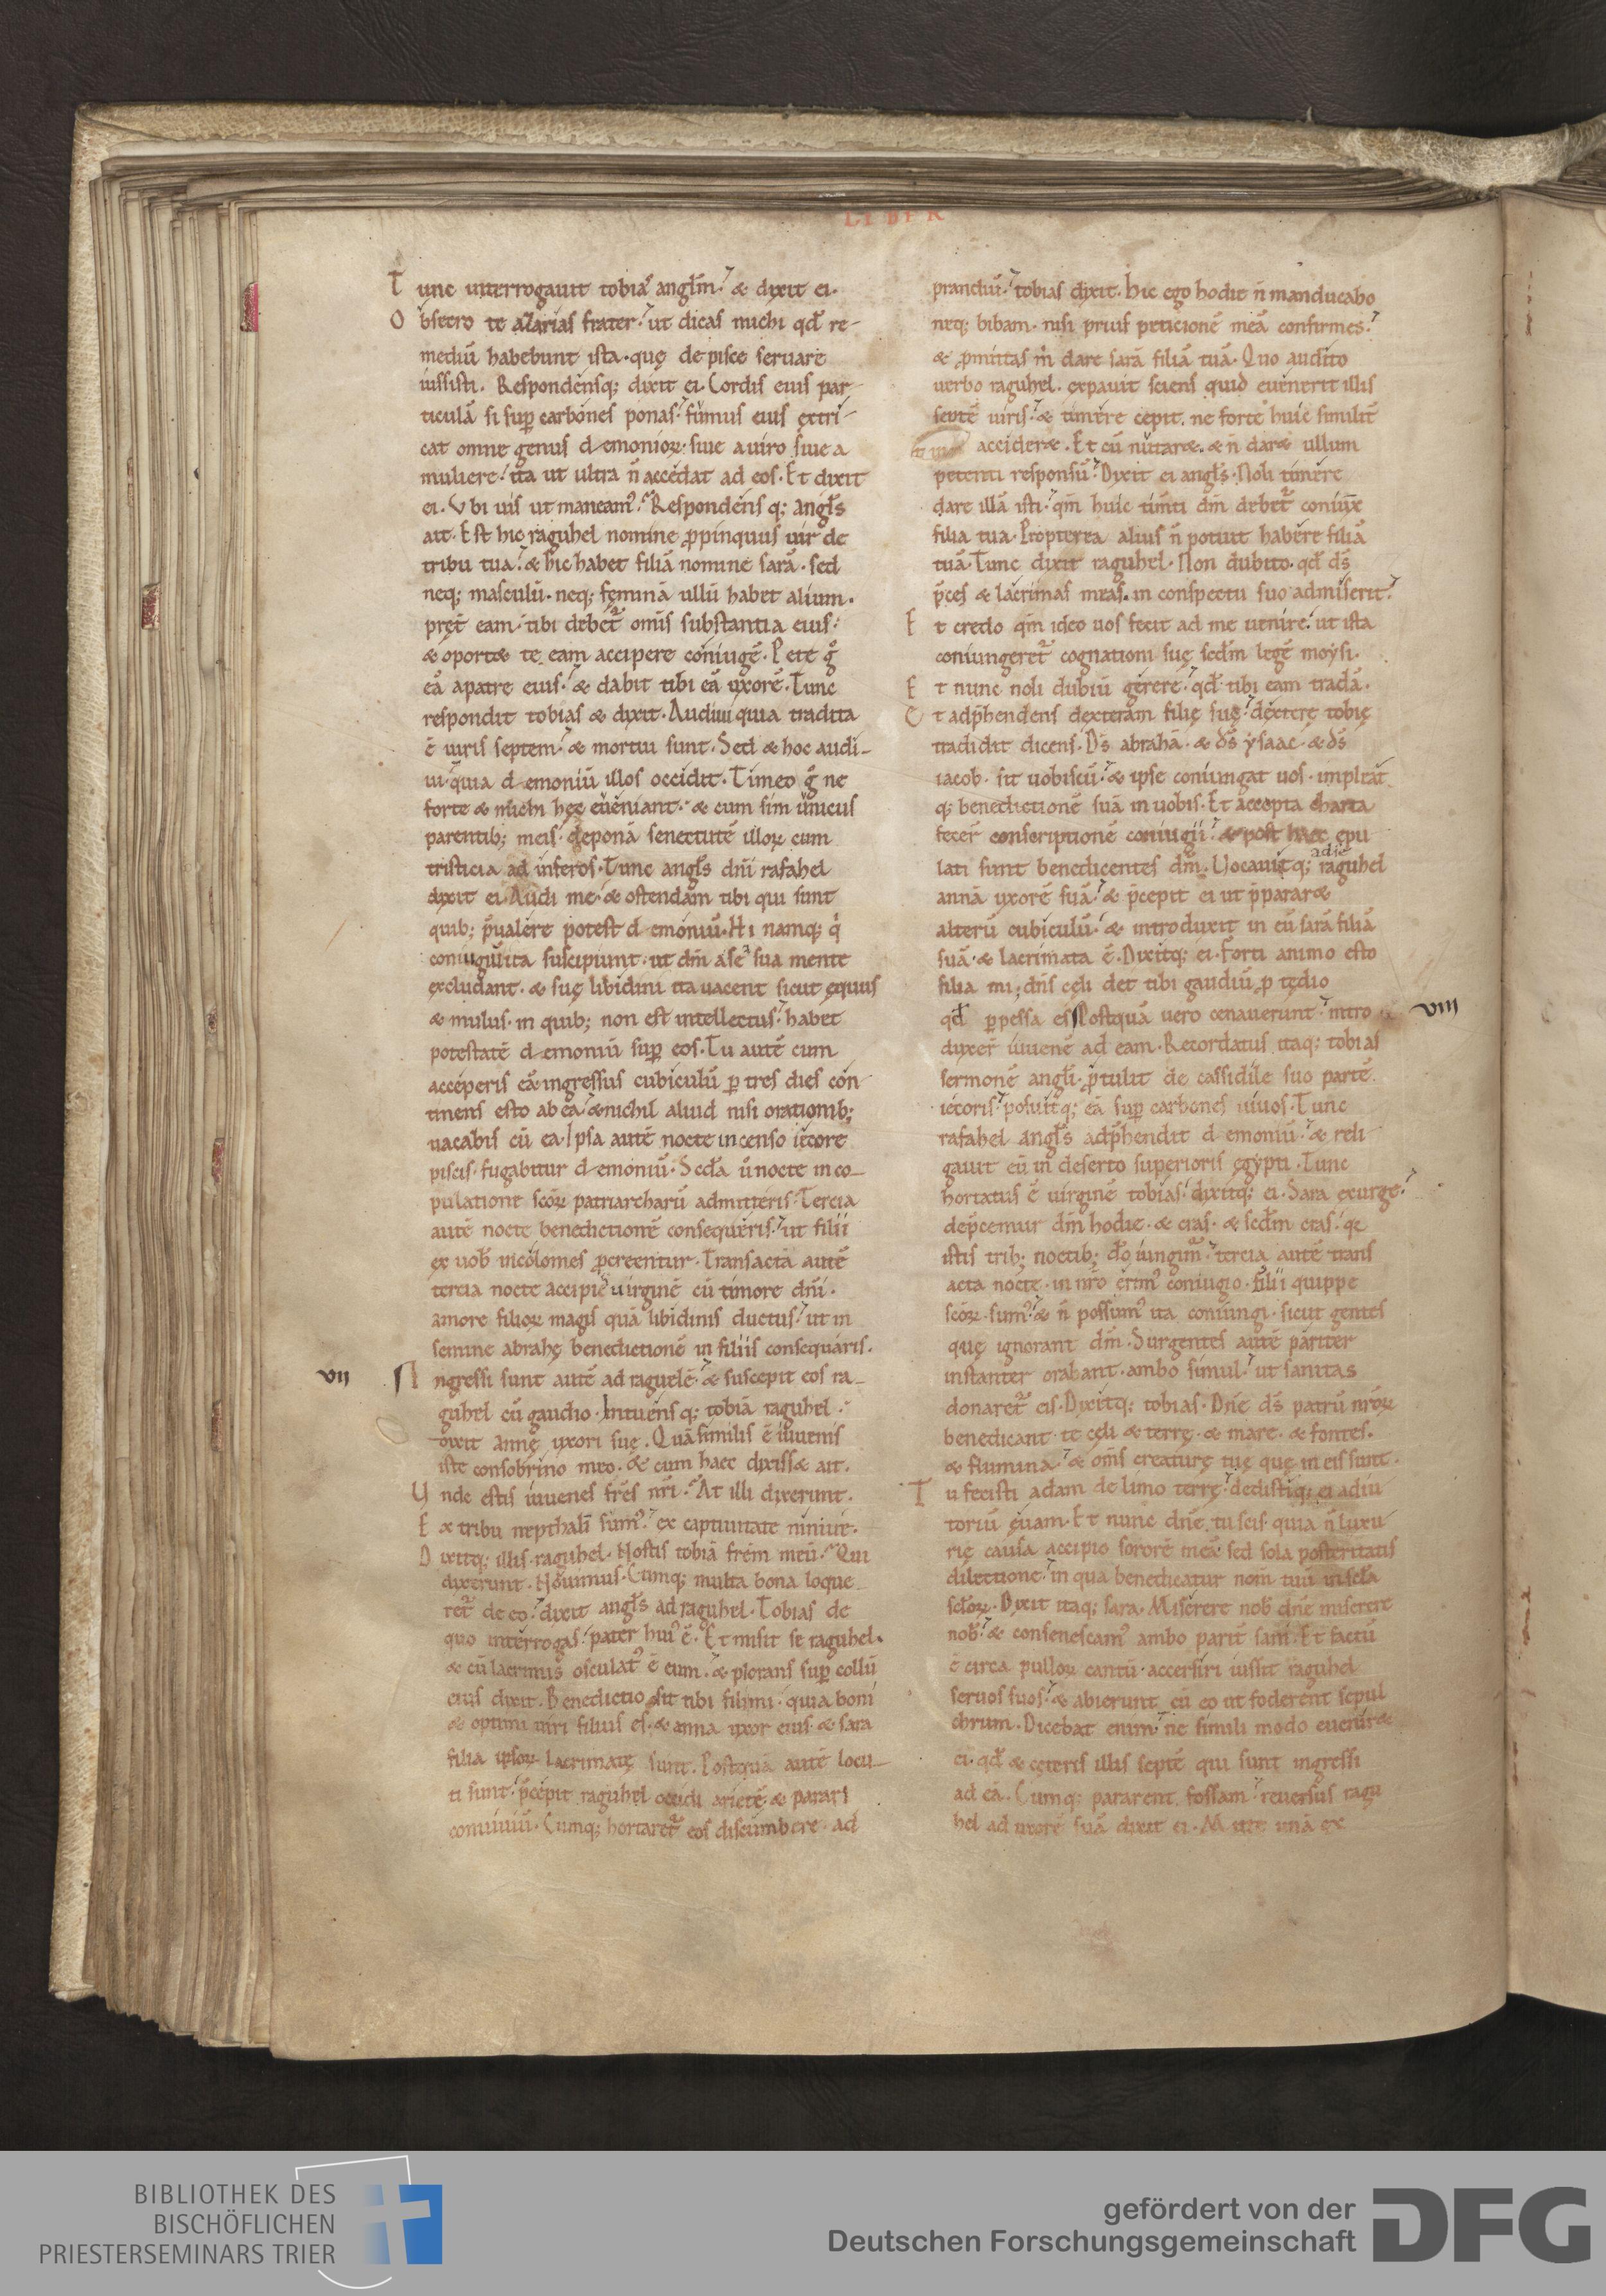 LIBER
Tunc interrogauit tobias anglm. & dixit ei.
Obsecro te azarias frater. ut dicas michi qđ re-
mediū habebunt ista. quę de pisce seruare
iussisti. Respondensq; dixit ei. Cordis eius par-
ticulā si sup carbones ponas. fumus eius extri-
cat omne genus demonioꝝ. siue a uiro siue a
muliere. ita ut ultra ñ accedat ad eos. Et dixit
ei. Vbi uis ut maneam᾽. Respondensq; angls
ait. Est hic raguhel nomine ꝓpinquus uir de
tribu tua. & hic habet filiā nomine sarā. sed
neq; masculū. neq; feminā ullū habet alium.
pręt eam. tibi debet᷑ omis substantia eius.
& oport& te eam accipere coniugē. Pete g̊
eā a patre eius. & dabit tibi eā uxorē. Tunc
respondit tobias & dixit. Audiui quia tradita
ē uiris septem. & mortui sunt. Sed & hoc audi-
ui. quia demoniū illos occidit. Timeo g̊ ne
forte & michi hęc eueniant. & cum sim unicus
parentib; meis. deponā senectutē illoꝝ cum
tristicia ad inferos. Tunc angls dñi rafahel
dixit ei. Audi me. & ostendam tibi qui sunt
quib; p̄ualere potest demoniū. Hi namq; q̇
coniugiū ita suscipiunt. ut dm̄ a se & sua mente
excludant. & suę libidini ita uacent sicut equus
& mulus. in quib; non est intellectus. habet
potestatē demoniū sup eos. Tu autē cum
acceperis eā. ingressus cubiculū p tres dies con-
tinens esto ab ea. & nichil aliud nisi orationib;
uacabis cū ea. Ipsa autē nocte incenso iecore
piscis. fugabitur demoniū. Scđa ů nocte in co-
pulatione scōꝝ patriarcharū admitteris. Tercia
autē nocte benedictionē consequeris. ut filii
ex uob incolomes ꝓcreentur. Transacta autē
tercia nocte accipies uirginē cū timore dñi.
amore filioꝝ magis quā libidinis ductus. ut in
semine abrahę benedictionē in filiis consequaris.
vii
Ingressi sunt autē ad raguelē. & suscepit eos ra-
guhel cū gaudio. Intuensq; tobiā raguhel.
dixit annę uxori suę. Quā similis ē iuuenis
iste consobrino meo. & cum haec dixiss& ait.
Unde estis iuuenes frēs nr̄i. At illi dixerunt.
Ex tribu nepthali sum᾽. ex captiuitate niniue.
Dixitq; illis raguhel. Nostis tobiā frēm meū. Qui
dixerunt. Nouimus. Cumq; multa bona loque
ret᷑ de eo. dixit angls ad raguhel. Tobias de
quo interrogas. pater hui᾽ ē. Et misit se raguhel.
& cū lacrimis osculat᾽ ē eum. & plorans sup collū
eius dixit. Benedictio sit tibi fili mi. quia boni
& optimi uiri filius es. & anna uxor eius. & sara
filia ipsoꝝ lacrimatę sunt. Postquā autē locu-
ti sunt. p̄cepit raguhel occidi arietē. & parari
conuiuiū. Cumq; hortaret᷑ eos discumbere. ad
prandiū. tobias dixit. Hic ego hodie ñ manducabo
neq; bibam. nisi prius peticionē meā confirmes.
& ꝓmittas m̊ dare sarā filiā tuā. Quo audito
uerbo raguhel. expauit sciens quid euenerit illis
septē uiris. & timere cepit. ne forte huic similit
accider&. Et cū nutar&. & ñ dar& ullum
petenti responsū. Dixit ei angls. Noli timere
dare illā isti. qm̄ huic timti dm̄ debet᷑ coniux
filia tua. Propterea alius ñ potuit habere filiā
tuā. Tunc dixit raguhel. Non dubito. qđ ds̄
p̄ces & lacrimas meas. in conspectu suo admiserit.
Et credo qm̄ ideo uos fecit ad me uenire. ut ista
coniungeret᷑ cognationi suę scđm legē moysi.
Et nunc noli dubiū gerere. qđ tibi eam tradā.
Et adp̄hendens dexteram filię suę. dextere tobię
tradidit dicens. Ds̄ abrahā. & ds̄ ysaac. & ds̄
iacob. sit uobiscū. & ipse coniungat uos. impleat
q; benedictionē suā in uobis. Et accepta charta
fecer conscriptionē coniugii. & post haec epu
lati sunt benedicentes dm̄. Uocauitq; raguhel
ad se
annā uxorē suā. & p̄cepit ei ut p̄parar&
alterū cubiculū. & introduxit in eū sarā filiā
suā. & lacrimata ē. Dixitq; ei. Forti animo esto
filia mi; dn̄s cęli det tibi gaudiū ꝓ tędio
qđ ppessa es. Postquā uero cenauerunt. intro
viii
duxer iuuenē ad eam. Recordatus itaq; tobias
sermonē angli. ꝓtulit de cassidile suo partē
iecoris. posuitq; eā sup carbones uiuos. Tunc
rafahel angls adp̄hendit demoniū. & reli
gauit eū in deserto superioris egypti. Tunc
hortatus ē uirginē tobias. dixitq; ei. Sara exurge.
dep̄cemur dm̄ hodie. & cras. & scđm cras. qe
istis trib; noctib; dō iungim᷑. tercia autē trans
acta nocte. in nr̄o erim᾽ coniugio. filii quippe
scōꝝ sum᾽. & ñ possum᾽ ita coniungi. sicut gentes
quę ignorant dm̄. Surgentes autē pariter
instanter orabant. ambo simul. ut sanitas
donaret᷑ eis. Dixitq; tobias. Dn̄e ds̄ patrū nr̄oꝝ
benedicant te cęli & terrę. & mare. & fontes.
& flumina. & om̄s creaturę tuę quę in eis sunt.
Tu fecisti adam de limo terrę. dedistiq; ei adiu
toriū euam. Et nunc dn̄e tu scis. quia ñ luxu
rię causa accipio sororē meā. sed sola posteritatis
dilectione. in qua benedicatur nom̄ tuū in scła
scłoꝝ. Dixit itaq; sara. Miserere nob dn̄e miserere
nob. & consenescam᾽ ambo parit sani. Et factū
ē circa pulloꝝ cantū. accersiri iussit raguhel
seruos suos. & abierunt cū eo ut foderent sepul
chrum. Dicebat enim. ne simili modo euenir&
ei. qđ & ceteris illis septē qui sunt ingressi
ad eā. Cumq; pararent fossam. reuersus ragu
hel ad uxorē suā dixit ei. Mitte unā ex
BIBLIOTHEK DES
BISCHÖFLICHEN
PRIESTERSEMINARS TRIER
gefördert von der
Deutschen Forschungsgemeinschaft
DFG